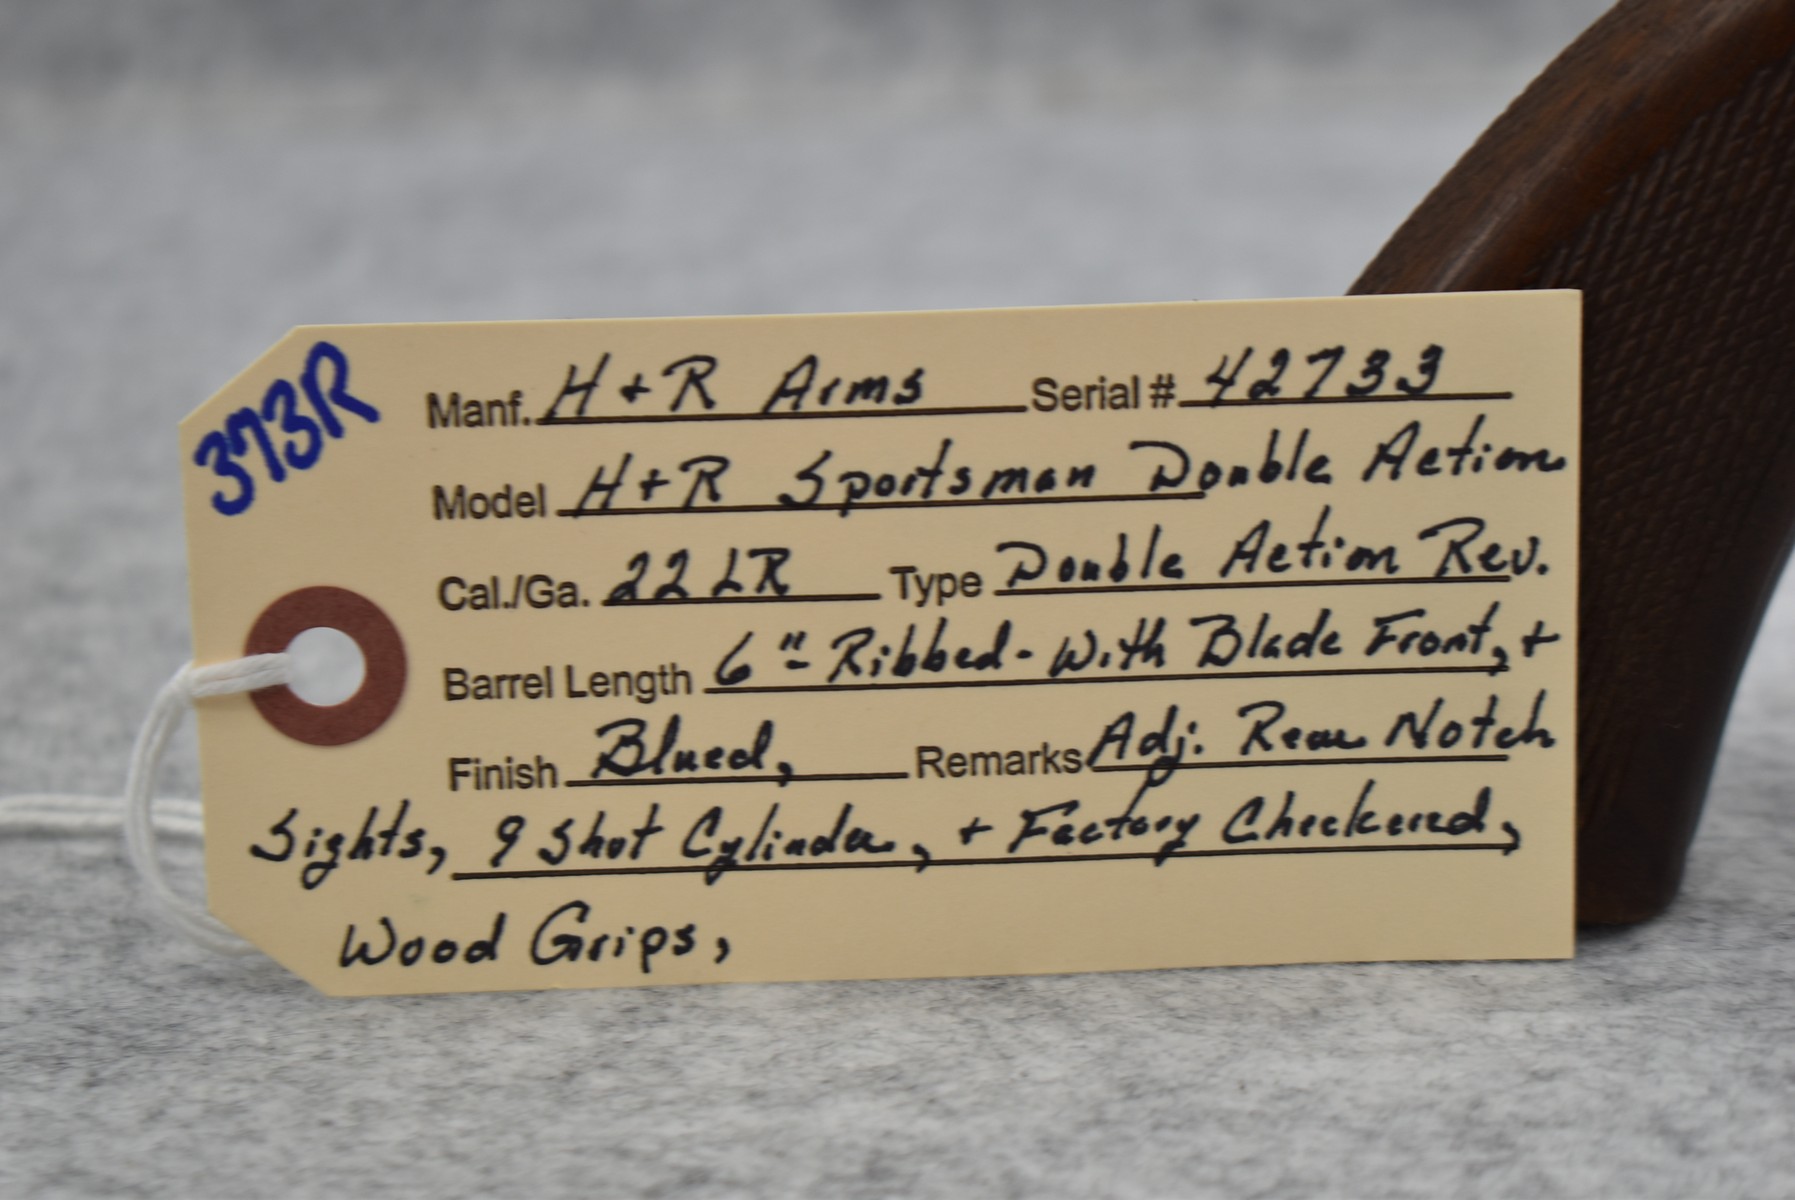 373R
Manf. H + R Arms Serial # 42733
Model H + R Sportsman Double Action
Cal./Ga. 22 LR Type Double Action Rev.
Barrel Length 6" - Ribbed - With Blade Front, +
Finish Blued, Remarks Adj. Rear Notch
Sights, 9 Shot Cylinder, + Factory Checkered,
Wood Grips,